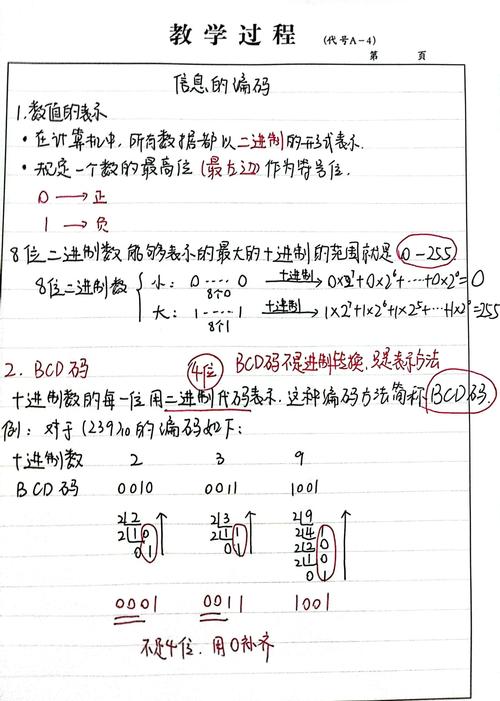 教 学 过 程 (代号A-4)
第 页
信息的编码
1.数值的表示
·在计算机中,所有数据都以二进制的形式表示.
·规定一个数的最高位(最左边)作为符号位.
0 → 正
1 → 负
8位二进制数能够表示的最大的十进制的范围就是 0-255.
8位二进制数 { 小: 0 ···· 0 十进制→ 0×2⁷+0×2⁶+···+0×2⁰=0
8个0
大: 1 ···· 1 十进制→ 1×2⁷+1×2⁶+1×2⁵+···+1×2⁰=255
8个1
2. BCD码 4位 BCD码不是进制转换,只是表示方法
十进制数的每一位用二进制代码表示.这种编码方法简称BCD码.
例:对于(239)₁₀的编码如下:
十进制数 2 3 9
BCD码 0010 0011 1001
2|2 2|3 2|9
2|1 0 2|1 1 2|4 1
0 1 0 1 2|2 0
2|1 0
0 1
0001 0011 1001
不是4位.用0补齐